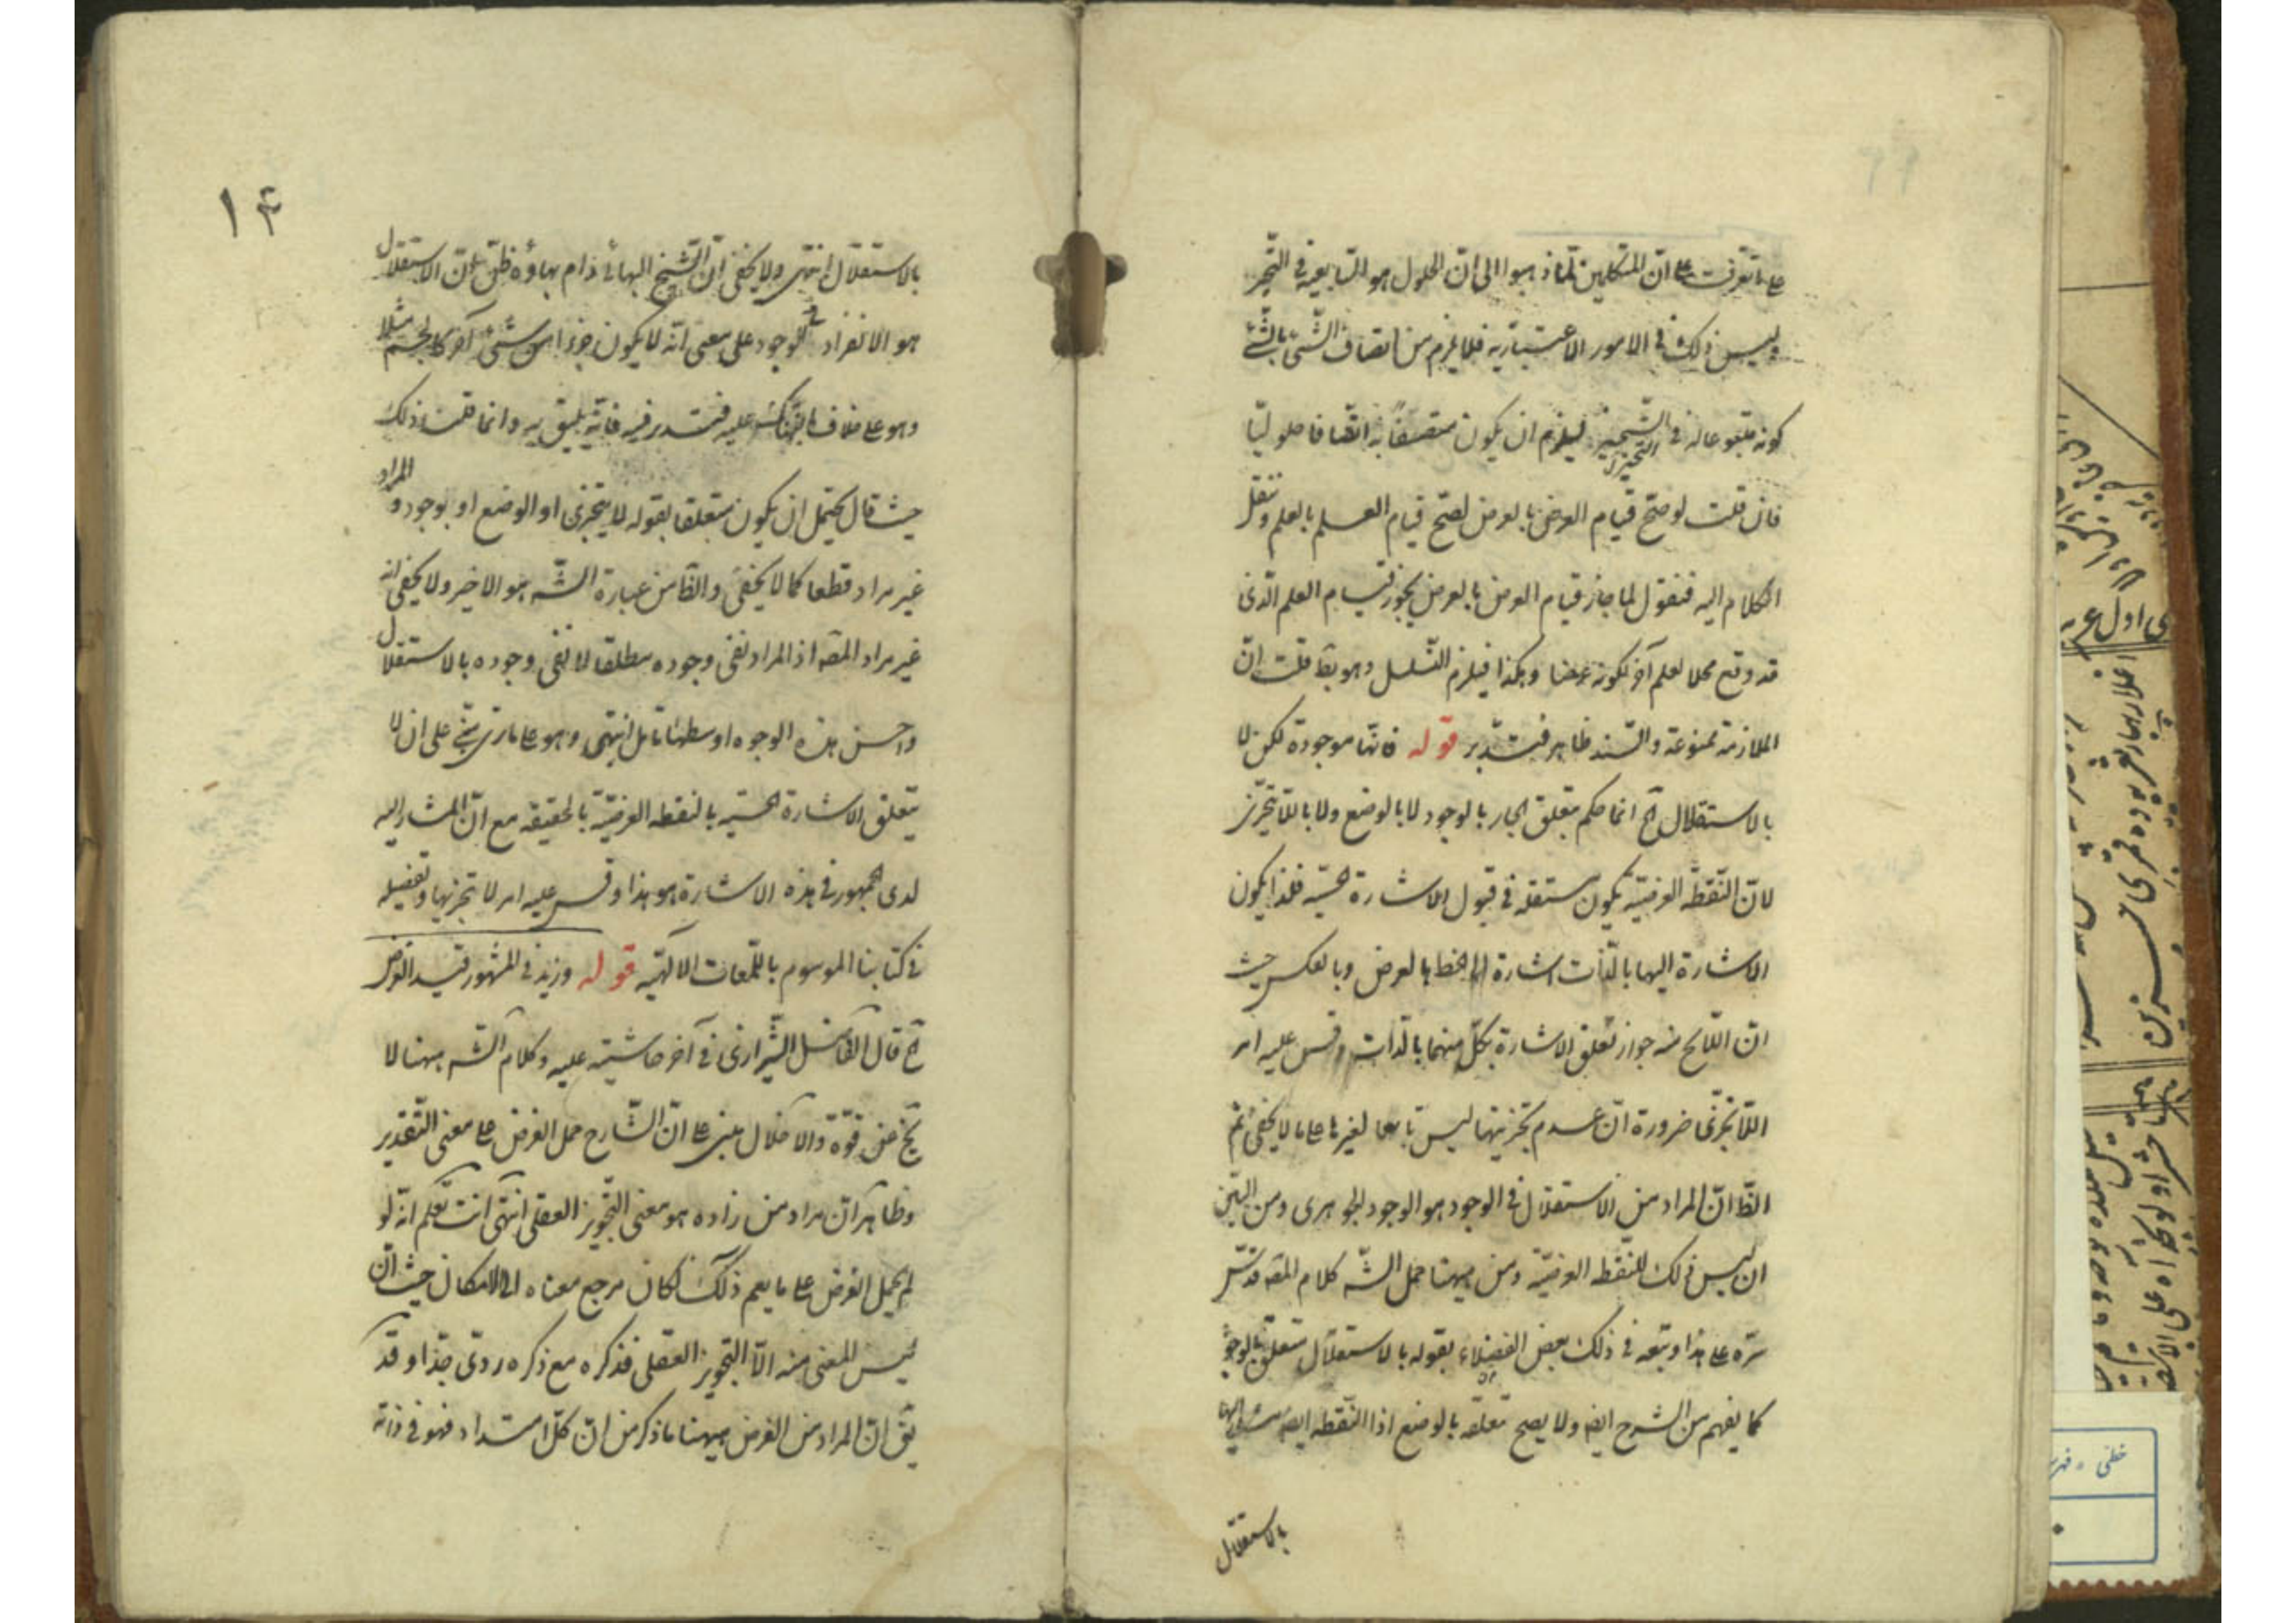 على ما تعرفت على ان المتكلمين لما ذهبوا الى ان الحلول هو التابعية فى التحيز
وليس ذلك فى الامور الاعتبارية فلا يلزم من اتصاف الشئ بالشئ
كونه متبوعا له فى التحيز ليلزم ان يكون متصفا به اتصافا حلوليا
التحيز
فان قلت لو صح قيام العرض بالعرض لصح قيام العلم بالعلم وننقل
الكلام اليه فنقول لما جاز قيام العرض بالعرض يجوز قيام العلم الذى
قد وقع محلا لعلم آخر لكونه عرضا وهكذا فيلزم التسلسل وهو بط قلت ان
الملازمة ممنوعة والسند ظاهر فتدبر قوله فانها موجودة لكن لا
بالاستقلال آه انما حكم بتعلق الجار بالوجود لا بالوضع ولا باللاتجزى
لان النقطة العرضية يكون مستقلة فى قبول الاشارة الحسية فلذا يكون
الاشارة اليها بالذات اشارة الى الخط بالعرض وبالعكس حيث
ان اللائح منه جواز تعلق الاشارة بكل منهما بالذات وقس عليه امر
اللاتجزى ضرورة ان عدم تجزيتها ليس تابعا لغيرها على ما لا يخفى ثم
الظ ان المراد من الاستقلال فى الوجود هو الوجود الجوهرى ومن البين
ان ليس ذلك للنقطة العرضية ومن ههنا حمل الشه كلام المصه قدس
سره على هذا وتبعه فى ذلك بعض الفضلاء بقوله بالاستقلال متعلق بالوجود
كما يفهم من الشرح ايضا ولا يصح تعلقه بالوضع اذا النقطة ايضا مشار اليها
بالاستقلال
١٤
بالاستقلال انتهى ولا يخفى ان الشيخ البهائى دام بهاؤه ظن ان الاستقلال
هو الانفراد فى الوجود على معنى انه لا يكون جزءا من شئ آخر كالجسم مثلا
وهو على خلاف ما نبهناك عليه فتدبر فيه فانه يليق به وانما قلت ذلك
حيث قال يحتمل ان يكون متعلقا بقوله لا يتجزى او الوضع او بوجود والمراد
غير مراد قطعا كما لا يخفى والظ من عبارة الشه هو الاخير ولا يخفى انه
غير مراد المصه اذ المراد نفى وجوده مطلقا لا نفى وجوده بالاستقلال
واحسن هذه الوجوه اوسطها تامل انتهى وهو على ما ترى يبتنى على ان لا
يتعلق الاشارة الحسية بالنقطة العرضية بالحقيقة مع ان المشار اليه
لدى الجمهور فى هذه الاشارة هو هذا وقس عليه امر لا تجزيها وتفصيله
فى كتابنا الموسوم باللمعات الالهية قوله وزيد فى المشهور قيد الفرض
آه قال الفاضل الشيرازى فى آخر حاشيته عليه وكلام الشه ههنا لا
يخ عن قوة والاختلال مبنى على ان الشارح حمل الفرض على معنى التقدير
وظاهر ان مراد من زاده هو معنى التجويز العقلى انتهى انت تعلم انه لو
لم يحمل الفرض على ما يعم ذلك لكان مرجع معناه الى الامكان حيث ان
ليس المعنى منه الا التجويز العقلى فذكره مع ذكره ردى جدا وقد
يق ان المراد من الفرض ههنا ما ذكر من ان كل امتداد فهو فى ذاته